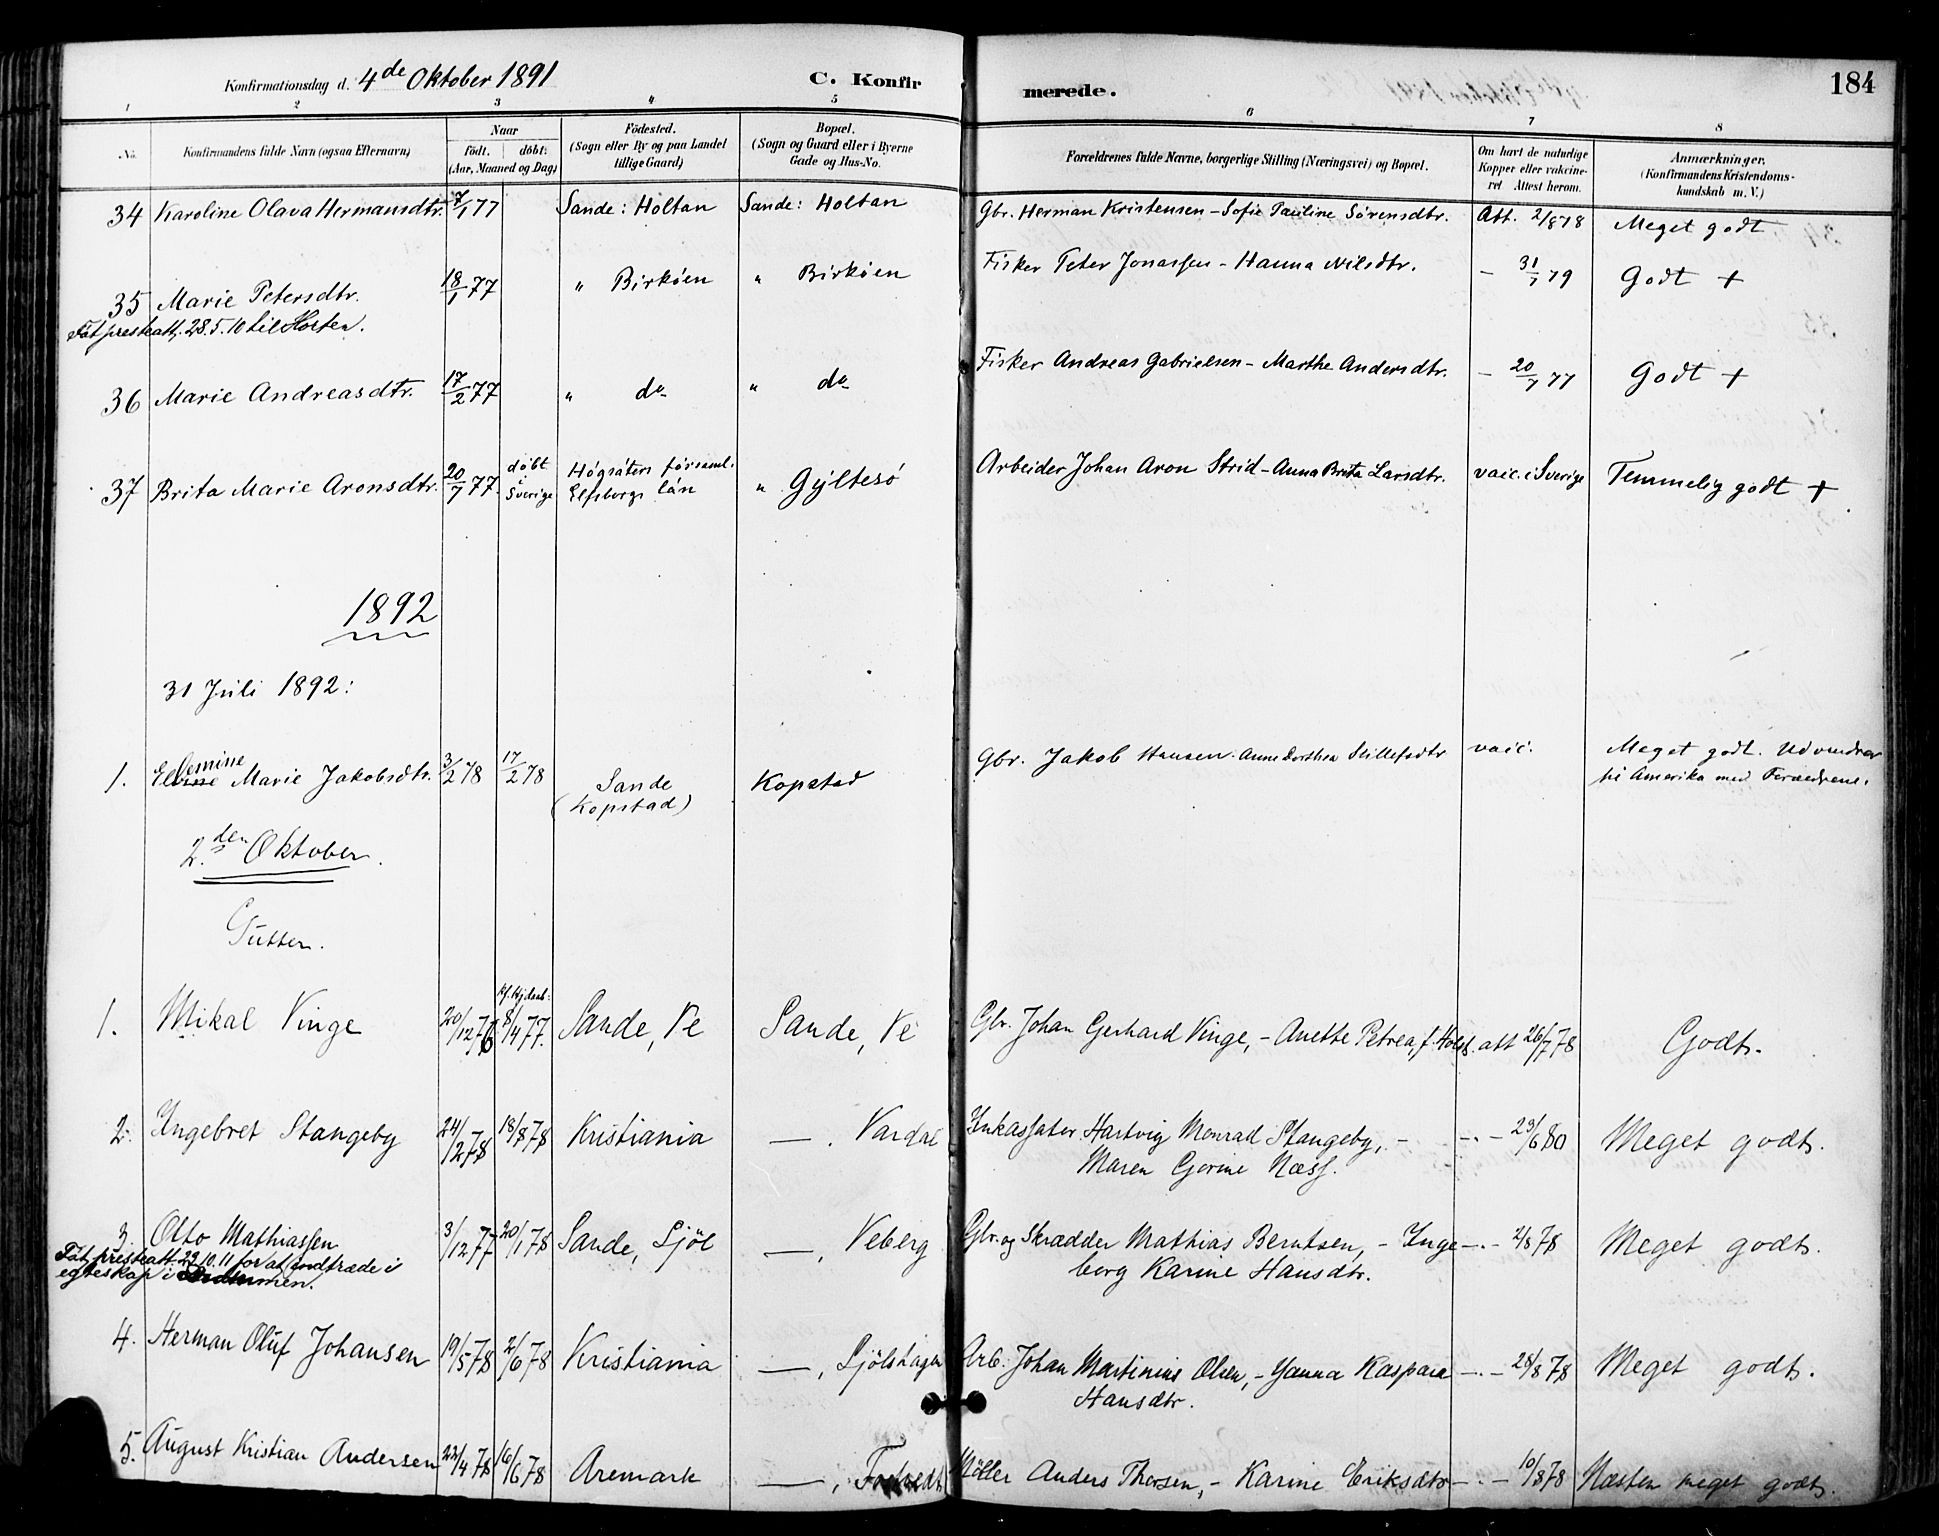 Konfirmationsdag d. 4de Oktober 1891 C. Konfirmerede. 184
1 2 3 4 5 6 7 8
No. Konfirmandens fulde Navn (ogsaa Efternavn) Naar født. døbt: (Aar, Maaned og Dag) Födested. (Sogn eller By og paa Landet tillige Gaard) Bopæl. (Sogn og Gaard eller i Byerne Gade og Hus-No. Forældrenes fulde Navne, borgerlige Stilling (Næringsvei) og Bopæl. Om havt de naturlige Kopper eller vakcineret Attest herom. Anmærkninger, (Konfirmandens Kristendomskundskab m. V.)
34 Karoline Olava Hermansdtr. 7/1 77 Sande: Holtan Sande: Holtan Gbr. Herman Kristensen - Sofie Pauline Sørensdtr. Att. 2/8 78 Meget godt
35 Marie Petersdtr. 18/1 77 " Birkøen " Birkøen Fisker Peter Jonassen - Hanna Nilsdtr. - 31/7 79 Godt +
Fåt presteatt. 28.5.10 til Horten.
36 Marie Andreasdtr. 17/2 77 " do " do Fisker Andreas Gabrielsen - Marthe Andersdtr. - 20/7 77 Godt +
37 Brita Marie Aronsdtr. 20/7 77 døbt i Sverige Högsäters församl. Elfsborgs län " Gyltesø Arbeider Johan Aron Strid - Anna Brita Larsdtr. vacc. i Sverige Temmelig godt +
1892
31 Juli 1892:
1. Elvine Marie Jakobsdtr. 3/2 78 17/2 78 Sande (Kopstad) Kopstad Gbr. Jakob Hansen Anne Dorthea Stillefsdtr vacc. Meget godt. Udvandrer til Amerika med Forældrene.
2.den Oktober.
Gutter.
1. Mikal Vinge 20/12 76 8/4 77. Sande, Ve Sande, Ve Gbr. Johan Gerhard Vinge, - Anette Petrea, f. Holst. att 26/7 78 Godt.
2. Ingebret Stangeby 24/2 78 18/8 78 Kristiania —. Vardal Inkassator Hartvig Monrad Stangeby, - -.- 23/6 80 Meget godt.
Maren Gorine Næss.
3. Otto Mathiassen 3/12 77 20/1 78 Sande, Sjöl —, Veberg Gbr. og Skrædder Mathias Berntsen, - Inge -.- 2/8 78 Meget godt.
Fåt presteatt. 23.10.11 for at indtræde i borg Karine Hansdtr.
egteskap i Drammen.
4. Herman Oluf Johansen 19/5 78 2/6 78 Kristiania —, Sjölshagen Arb. Johan Martinius Olsen, - Hanna Kaspara -.- 28/8 78 Meget godt.
Hansdtr.
5. August Kristian Andersen 22/4 78 16/6 78 Aremark —, Møller Anders Thorsen, - Karine Eriksdtr -.- 10/8 78 Næsten meget godt.